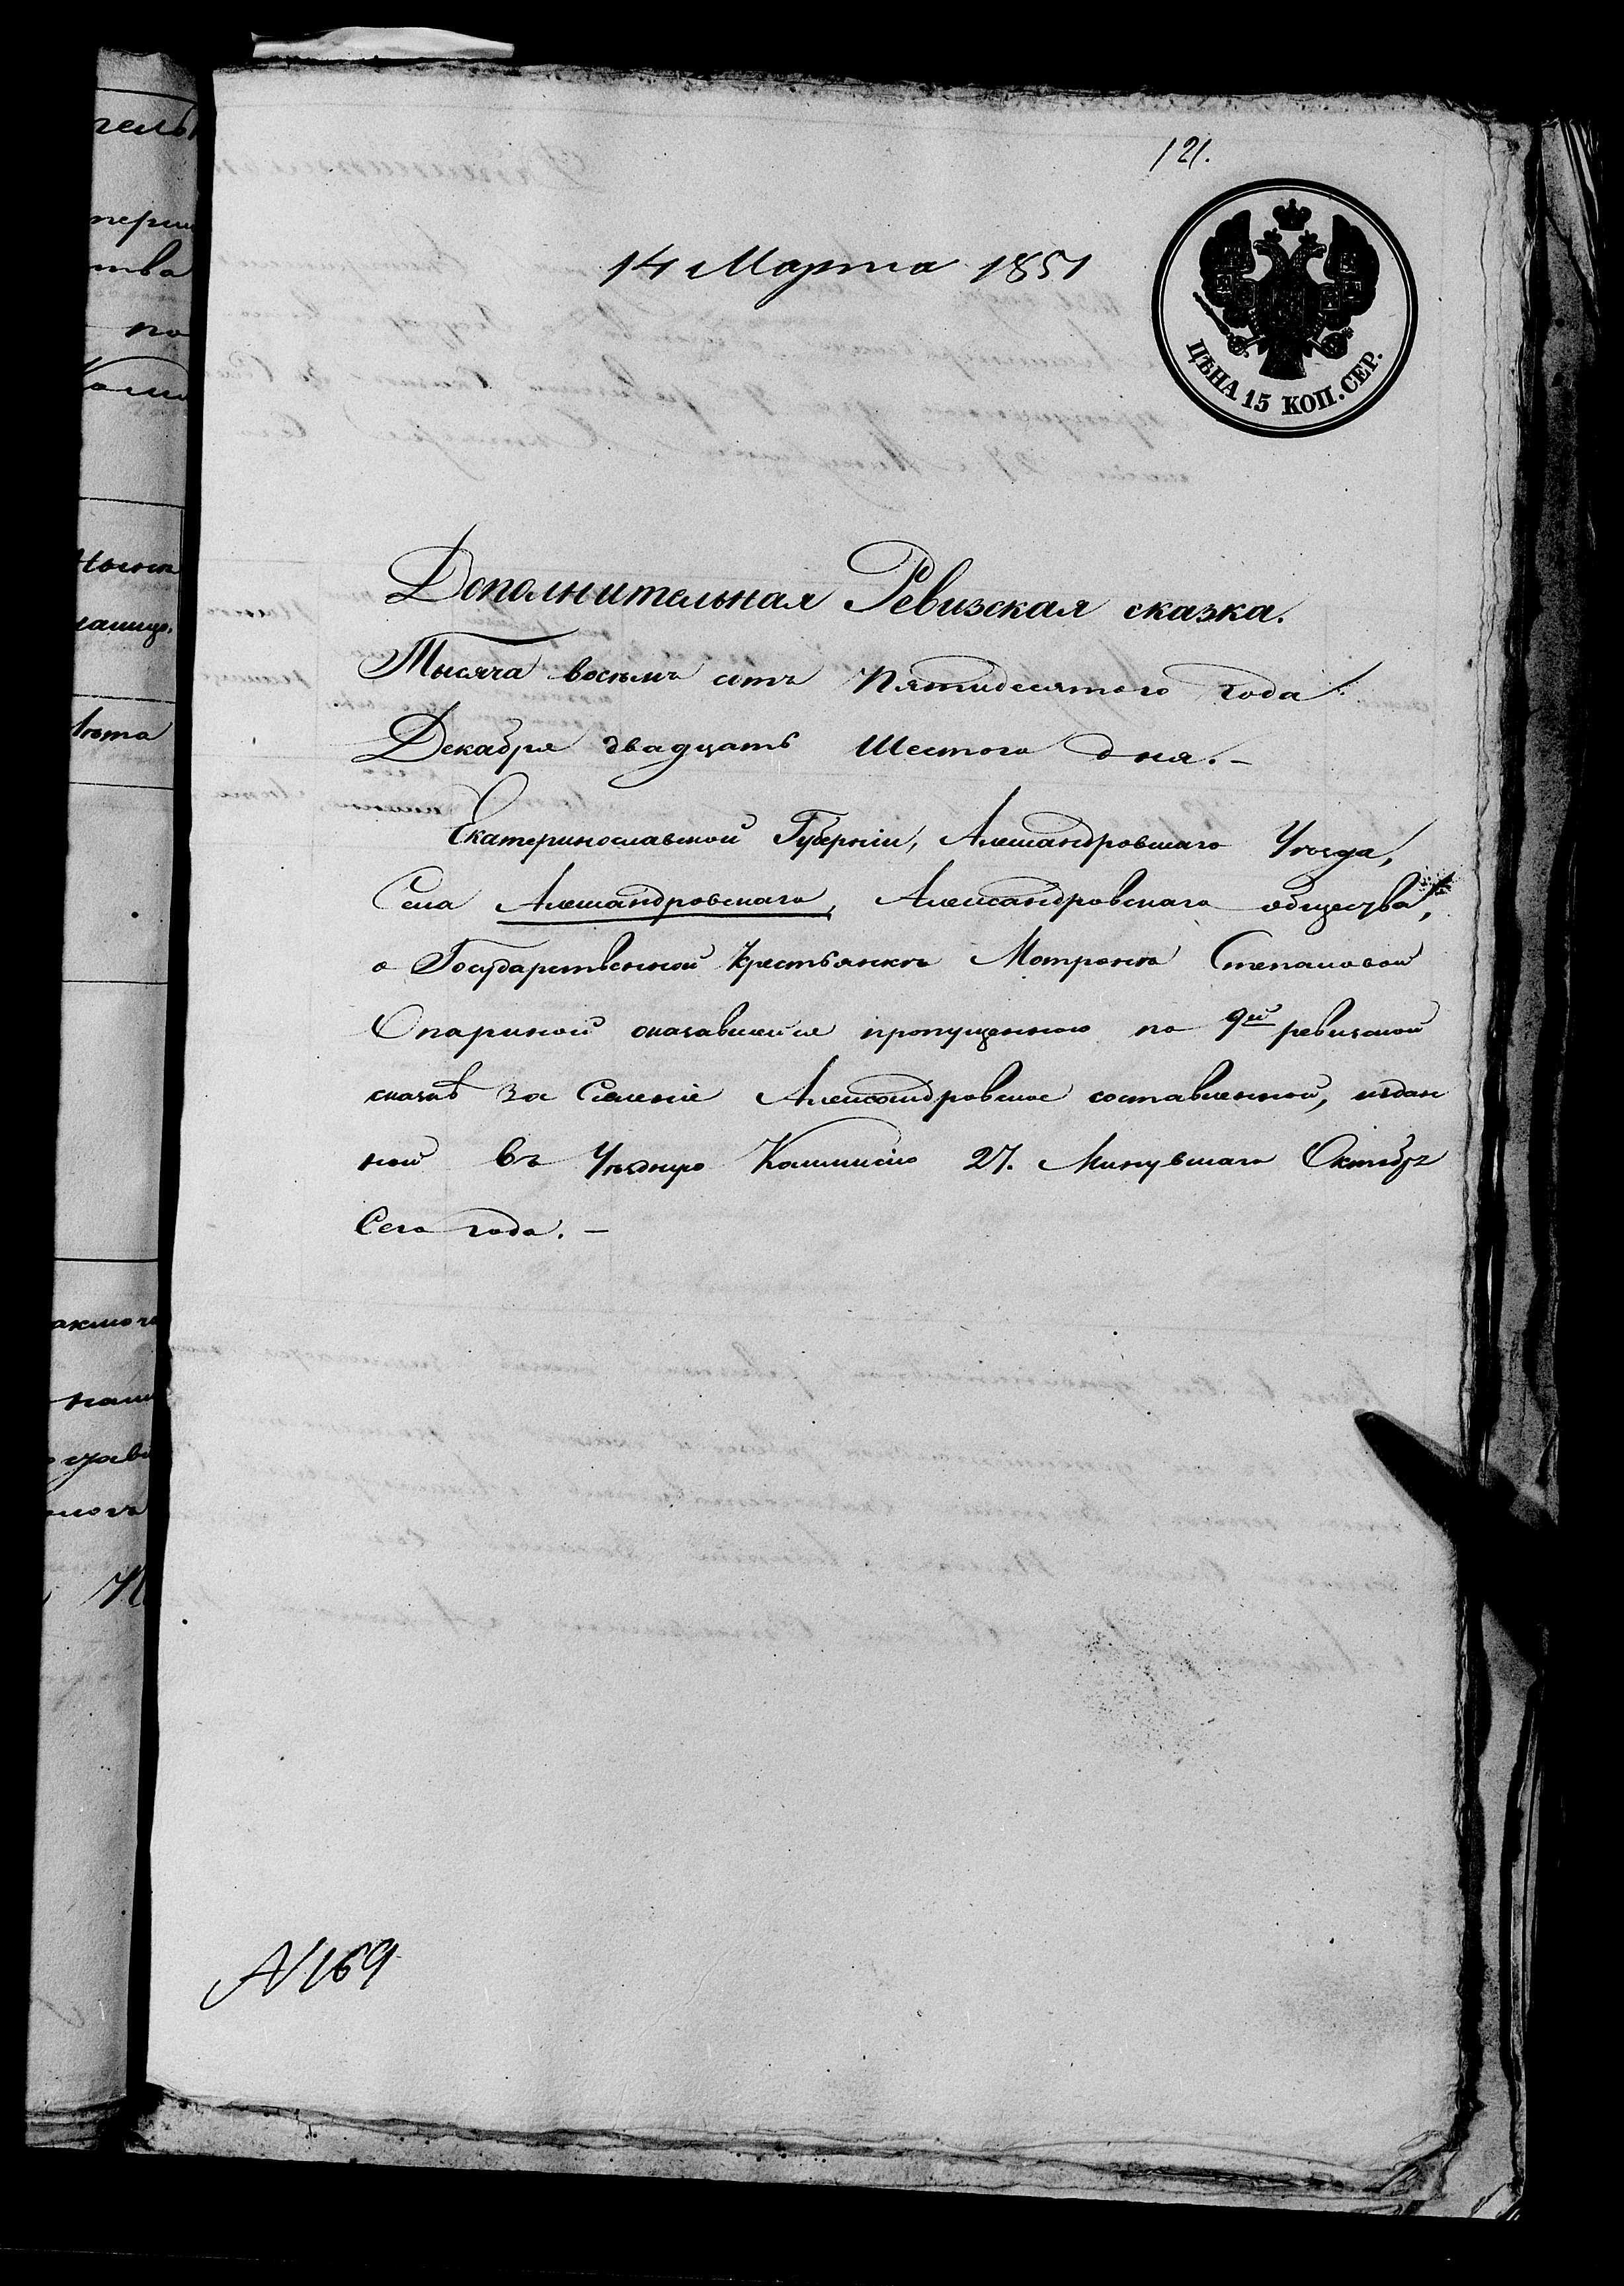 121.
14 Марта 1851
ЦѢНА 15 КОП. СЕР.
Дополнительная Ревизская сказка.
Тысяча восемь сотъ Пятидесятого года
Декабря двадцать Шестого дня.-
Екатеринославской Губерніи, Александровскаго Уѣзда,
Села Александровскаго, Александровскаго общества,
о Государственной Крестьянкѣ Матронѣ Степановой
Опариной оказавшейся пропущенною по 9й ревизской
сказкѣ за Селеніе Александровское составленной, издан
ной въ Уѣздную Коммисію 27. Минувшаго Октября
Сего года. -
N 169